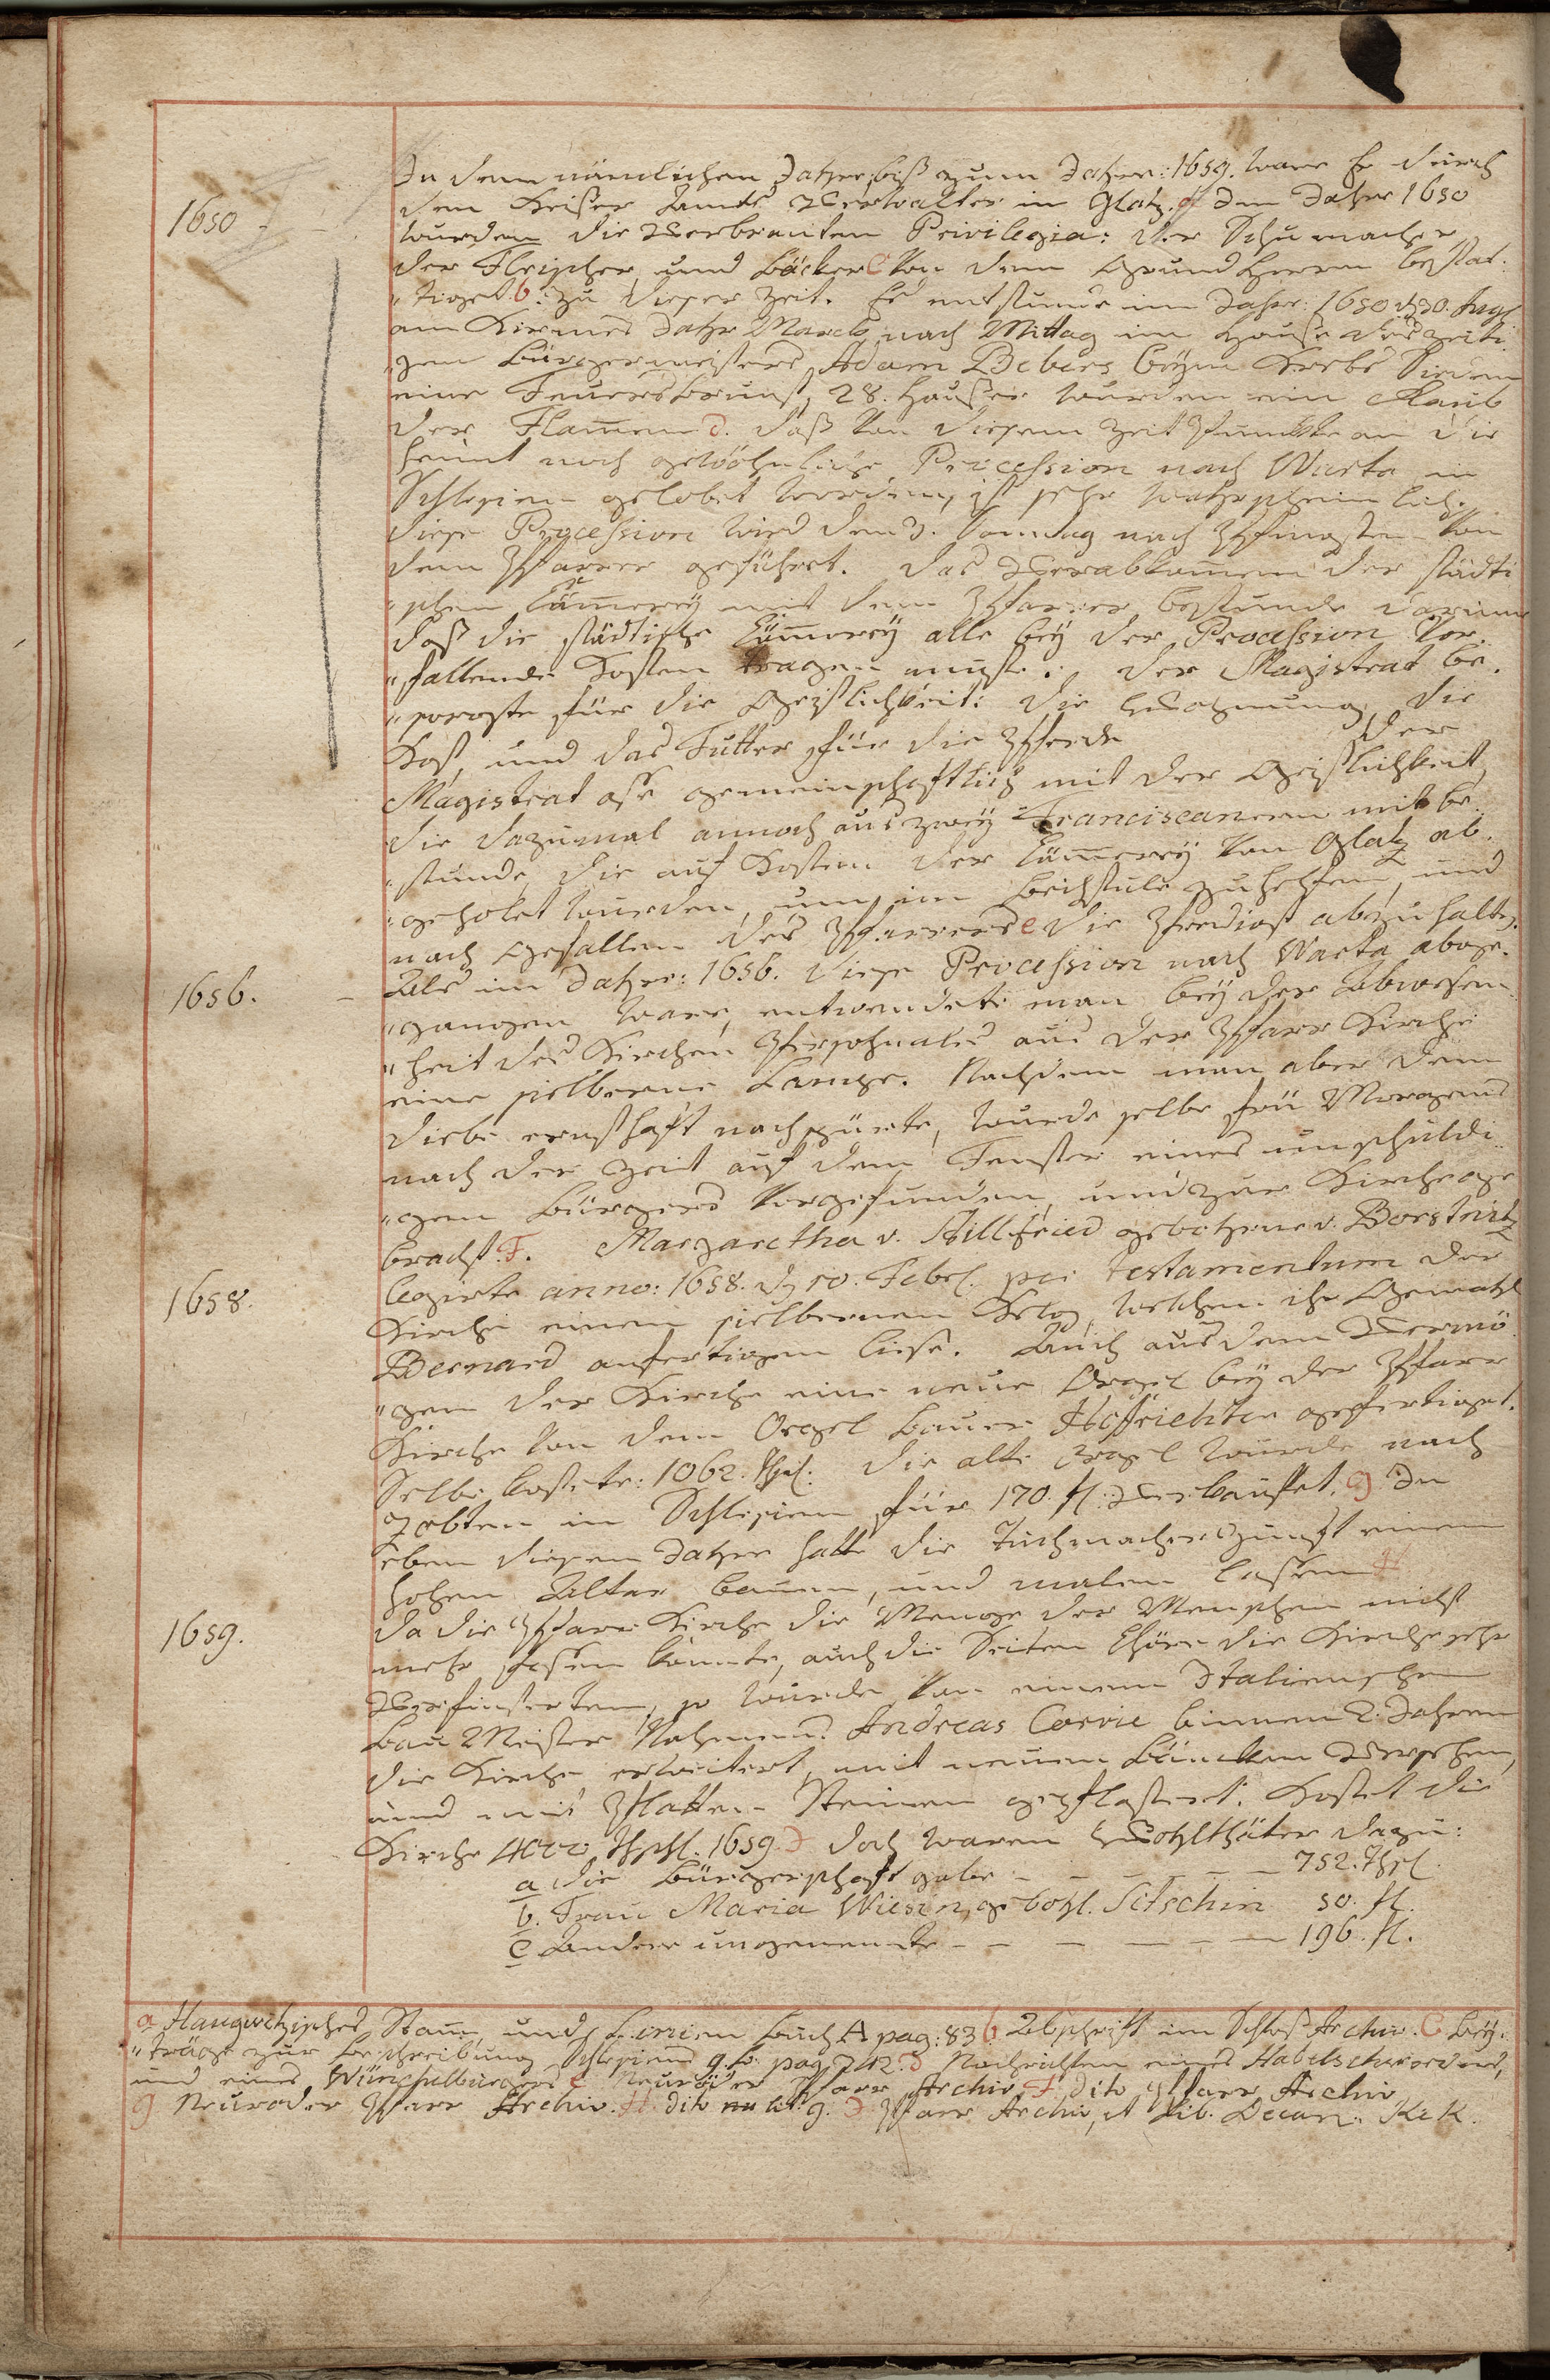 In dem nämlichen Jahre, biß zum Jahre: 1659. ware Er durch
1650
den Keiser Amts Verwalter in Glatz. a Im Jahre 1650
wurden die Verbranten Privilegia: der Schumacher
der Fleischer und Bäcker C von dem Grund Herrn bestät:
"tiget. b. zu dieser Zeit. Es entstunde im Jahre: 1650 d 30. Aug
am Kirmes Jahr Marck nach Mittag im Hause des zeiti
"gen Bürgermeisters Adam Bebers beym Krebs Sieden
eine Feuersbrunst, 28. Häußer wurden ein Raub
der Flam̄en d. daß von diesem Zeit Punckte an die
heunt noch gewöhnliche Procession nach Warta in
Schlesien gelobet worden, ist sehr wahrscheinlich.
diese Procession wird den 3. Sonntag nach Pfingsten von
dem Pfarrer geführet. das Verabkom̄en der städti
"schen Cäm̄erey mit dem Pfarrer bestunde darinn
daß die städtische Cäm̄erey alle bey der Procession vor.
"fallende Kosten tragen muste: der Magistrat be.
"sorgte für die Geistlichkeit: die Wohnung, die
Kost, und das Futter für die Pferde der
Magistrat aße gemeinschaftlich mit der Geistlichkeit,
die dazumal annoch aus zwey Franciscanern mit be.
"stunde, die auf Kosten der Cäm̄erey von Glatz ab.
"geholet wurden, um im Beichstule zu helfen, und
nach Gefallen des Pfarrers e die Predigt abzuhalten.
1656.
Als im Jahre: 1656. diese Procession nach Warta abge.
"gangen ware, entwendete man bey der Abwesen
"heit des Kirchen Personales aus der Pfarr Kirche
eine sielberne Lampe. Nachdem man aber dem
Diebe ernsthaft nachspürte, wurde selbe frü Morgens
nach der Zeit auf dem Fenster eines unschuldi
"gen Bürgers vorgefunden, und zur Kirche ge
bracht. F. Margaretha v. Stillfried gebohrne v. Borstnitz
1658.
legirte anno: 1658. d 10. Febr. per testamentum der
Kirche einen sielbernen Kelch, welchen ihr Gemahl
Bernard anfertigen ließe. Auch aus dem Vermö
"gen der Kirche eine neue Orgel bey der Pfarr
Kirche von dem Orgel Bauer Hoffrichter gefertiget.
Selbe kostete: 1062. Thl. die alte Orgel wurde nach
Zobten in Schlesien für 170. fl. Verkauffet. g In
eben diesem Jahre hatte die Tuchmacher Zunft einen
hohen Altar bauen, und malen lassen H
1659.
da die Pfarr Kirche die Menge der Menschen nicht
mehr fassen konnte, auch die Seiten Chöre die Kirche sehr
Verfinsterten, so wurde von einem Italienischen
Bau Meister Nahmens Andreas Corvie binnen 2. Jahren
die Kirche erweitert, mit neuen Bäncken Versehen,
und mit Platten Steinen gepflastert. Kostet die
Kirche 4000 Thl. 1659. I doch waren Wohlthäter dazu:
a die Bürgerschaft gabe - - - - - 752. Thl.
b. Frau Maria Wiesin, gebohl. Sitschin 50. fl.
c Andere ungenennte - - - - - 196. fl.
a Haugwitzisches Stam̄, und Linien Buch A pag: 83 b Abschrift im Schloß Archiv. C Bey.
"träge zur Beschreibung Schlesiens 9. B. pag 242. d Nachrichten eines Habelschwerders,
und eines Wünschelburgers e Neuroder Pfarr Archiv. F dito Pfarr Archiv
g Neuroder Pfarr Archiv. H dito lit: g. I Pfarr Archiv, et Lib. Decan. K.